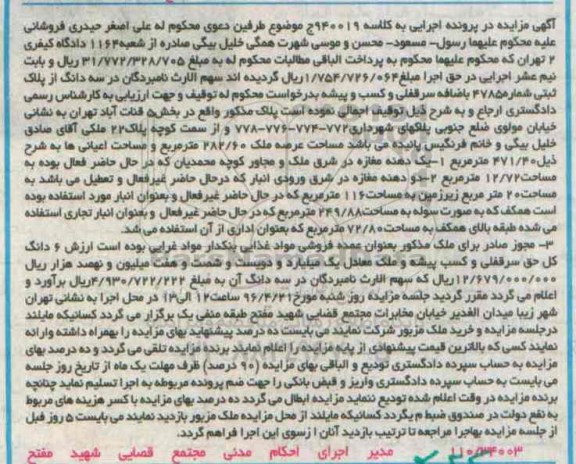 آگهی مزایده در پرونده اجرایی به کلاسه ۹۴۰۰۱۹ج موضوع طرفین دعوی محکوم له علی اصغر حیدری فروشانی
علیه محکوم علیهما رسول- مسعود- محسن و موسی شهرت همگی خلیل بیگی صادره از شعبه۱۱۶۴ دادگاه کیفری
۲ تهران که محکوم علیهما محکوم به پرداخت الباقی مطالبات محکوم له به مبلغ ۳۱/۷۷۲/۳۲۸/۷۰۵ ریال و بابت
نیم عشر اجرایی در حق اجرا مبلغ۱/۷۵۴/۷۲۶/۰۶۴ریال گردیده اند سهم الارث نامبردگان در سه دانگ از پلاک
ثبتی شماره۴۷۸۵ باضافه سرقفلی و کسب و پیشه بدرخواست محکوم له توقیف و جهت ارزیابی به کارشناس رسمی
دادگستری ارجاع و به شرح ذیل توقیف اجمالی نموده است پلاک مذکور واقع در بخش۵ قنات آباد تهران به نشانی
خیابان مولوی ضلع جنوبی پلاکهای شهرداری۷۷۲-۷۷۴-۷۷۶-۷۷۸ و از سمت کوچه پلاک۲۲ ملکی آقای صادق
خلیلی و خانم فرنگیس پائیده می باشد مساحت عرصه ملک ۲۸۲/۶۰ مترمربع و مساحت اعیانی ها به شرح
ذیل۴۷۱/۴۰ مترمربع ۱-یک دهنه مغازه در شرق ملک و مجاور کوچه محمدیان که در حال حاضر فعال بوده به
مساحت۱۲/۷۲ مترمربع ۲-دو دهنه مغازه در شرق ورودی انبار که درحال حاضر غیرفعال و تعطیل می باشد به
مساحت۲۰ متر مربع زیرزمین به مساحت۱۱۶ مترمربع که در حال حاضر غیرفعال و بعنوان انبار مورد استفاده بوده
است همکف که به صورت سوله به مساحت۲۴۹/۸۸ مترمربع که در حال حاضر غیرفعال و بعنوان انبار تجاری استفاده
می شده طبقه بالای همکف به مساحت۷۲/۸۰ مترمربع که بعنوان اداری از آن استفاده می شد.
۳- مجوز صادر برای ملک مذکور بعنوان عمده فروشی مواد غذایی بنکدار مواد غذایی بوده است ارزش ۶ دانگ
کل حق سرقفلی و کسب پیشه و ملک معادل یک میلیارد و دویست و شصت و هفت میلیون و نهصد هزار ریال
۱۲/۶۷۹/۰۰۰/۰۰۰ریال که سهم الارث نامبردگان در سه دانگ آن به مبلغ ۴/۹۳۰/۷۲۲/۲۲۲ریال برآورد و
اعلام می گردد مقرر گردید جلسه مزایده روز شنبه مورخ۹۶/۴/۲۱ ساعت۱۲ الی۱۳ در محل اجرا به نشانی تهران
شهر زیبا میدان الغدیر خیابان مخابرات مجتمع قضایی شهید مفتح طبقه منفی یک برگزار می گردد کسانیکه مایلند
درجلسه مزایده و خرید ملک مزبور شرکت نمایند می بایست ده درصد پیشنهاید بهای مزایده را بهمراه داشته وارائه
نمایند کسی که بالاترین قیمت پیشنهادی از پایه مزایده را اعلام نمایند برنده مزایده تلقی می گردد و ده درصد بهای
مزایده به حساب سپرده دادگستری تودیع و الباقی بهای مزایده (۹۰ درصد) ظرف مهلت یک ماه از تاریخ روز جلسه
می بایست به حساب سپرده دادگستری واریز و قبض بانکی را جهت ضم پرونده مربوطه به اجرا تسلیم نماید چنانچه
برنده مزایده در وقت اعلام شده تودیع ننماید مزایده ابطال می گردد ده درصد بهای مزایده با کسر هزینه های مربوط
به نفع دولت در صندوق ضبط م یگردد کسانیکه مایلند از محل مزایده ملک مزبور بازدید نمایند می بایست ۵ روز قبل
از جلسه مزایده بهاجرا مراجعه تا ترتیب بازدید آنان ا زسوی این اجرا فراهم گردد.
۱۱۰/۳۴۰۰۳ مدیر اجرای احکام مدنی مجتمع قضایی شهید مفتح